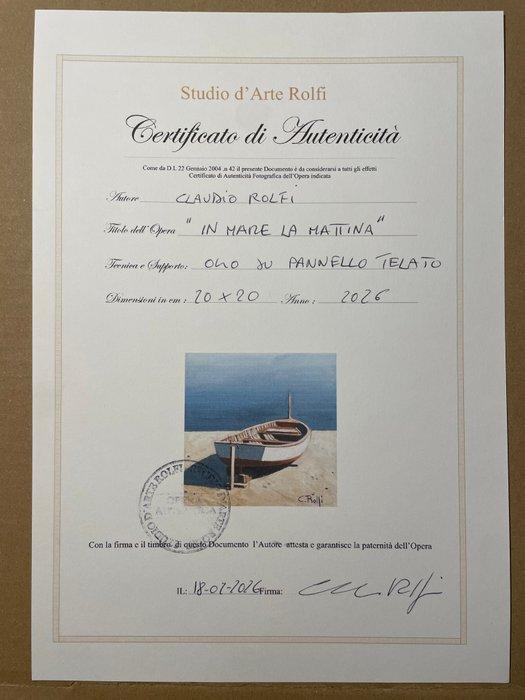 Studio d'Arte Rolfi
Certificato di Autenticità
Come da D.L 22 Gennaio 2004 ,n 42 il presente Documento è da considerarsi a tutti gli effetti
Certificato di Autenticità Fotografica dell'Opera indicata
Autore CLAUDIO ROLFI
Titolo dell'Opera "IN MARE LA MATTINA"
Tecnica e Supporto: OLIO SU PANNELLO TELATO
Dimensioni in cm : 20 x 20 Anno : 2026
C. Rolfi
STUDIO D'ARTE ROLFI
OPERA
Con la firma e il timbro di questo Documento l'Autore attesta e garantisce la paternità dell'Opera
IL: 18-02-2026 Firma: